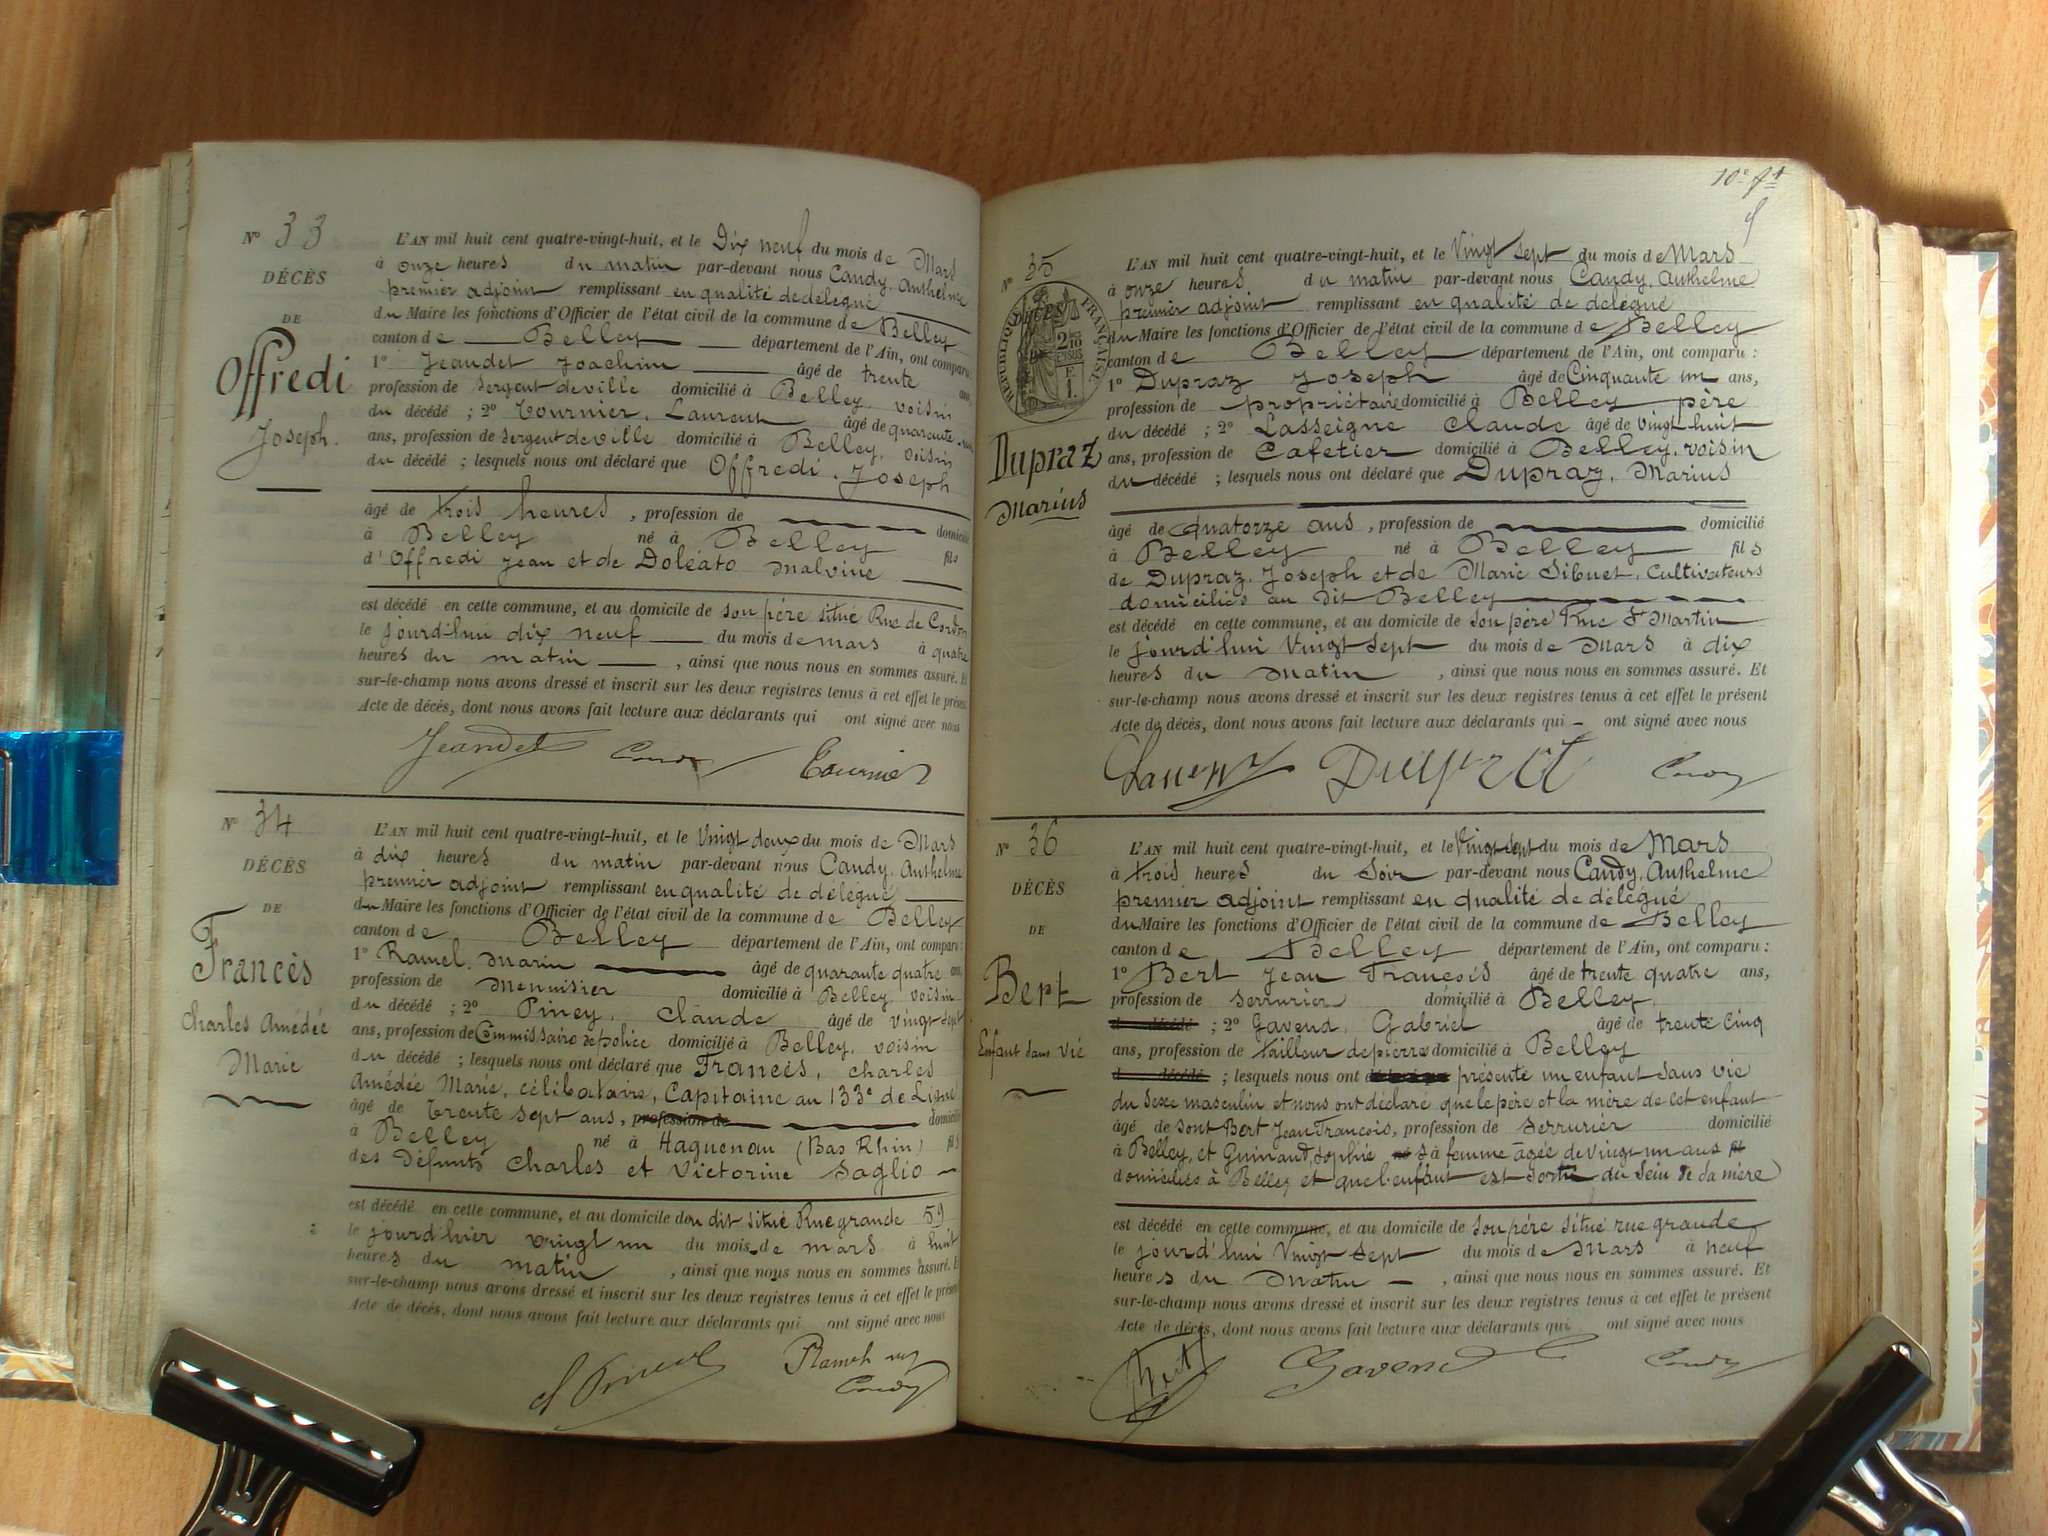 N° 33
DÉCÈS
DE
Offredi
Joseph.
L'AN mil huit cent quatre-vingt-huit, et le Dix neuf du mois de Mars
à onze heures du matin par-devant nous Candy, Anthelme
premier adjoint remplissant en qualité de délégué
du Maire les fonctions d'Officier de l'état civil de la commune de Belley
canton de Belley département de l'Ain, ont comparu :
1° Jeandet Joachim âgé de trente ans,
profession de sergent de ville domicilié à Belley, voisin
du décédé ; 2° Tournier, Laurent âgé de quarante
ans, profession de sergent de ville domicilié à Belley, voisin
du décédé ; lesquels nous ont déclaré que Offredi, Joseph
âgé de trois heures, profession de domicilié
à Belley né à Belley fils
d'Offredi Jean et de Doléato Malvine
est décédé en cette commune, et au domicile de son père situé Rue de Cordon
le jourd'hui dix neuf du mois de mars à quatre
heures du matin, ainsi que nous nous en sommes assuré. Et
sur-le-champ nous avons dressé et inscrit sur les deux registres tenus à cet effet le présent
Acte de décès, dont nous avons fait lecture aux déclarants qui ont signé avec nous
Jeandet Candy Tournier
N° 34
DÉCÈS
DE
Francès
Charles Amédée
Marie
L'AN mil huit cent quatre-vingt-huit, et le Vingt deux du mois de Mars
à dix heures du matin par-devant nous Candy, Anthelme
premier adjoint remplissant en qualité de délégué
du Maire les fonctions d'Officier de l'état civil de la commune de Belley
canton de Belley département de l'Ain, ont comparu :
1° Ramel, Marin âgé de quarante quatre ans,
profession de Menuisier domicilié à Belley, voisin
du décédé ; 2° Piney, Claude âgé de vingt sept
ans, profession de Commissaire de police domicilié à Belley, voisin
du décédé ; lesquels nous ont déclaré que Francès, Charles
Amédée Marie, célibataire, Capitaine au 133e de Ligne
âgé de trente sept ans, profession de domicilié
à Belley né à Haguenau (Bas Rhin) fils
des défunts Charles et Victorine Saglio
est décédé en cette commune, et au domicile du dit situé Rue grande 59
le jourd'hier vingt un du mois de mars à huit
heures du matin, ainsi que nous nous en sommes assuré. Et
sur-le-champ nous avons dressé et inscrit sur les deux registres tenus à cet effet le présent
Acte de décès, dont nous avons fait lecture aux déclarants qui ont signé avec nous
Candy
10e ft
N° 35
DÉCÈS
RÉPUBLIQUE FRANÇAISE
Dupraz
Marius
L'AN mil huit cent quatre-vingt-huit, et le Vingt sept du mois de Mars
à onze heures du matin par-devant nous Candy, Anthelme
premier adjoint remplissant en qualité de délégué
du Maire les fonctions d'Officier de l'état civil de la commune de Belley
canton de Belley département de l'Ain, ont comparu :
1° Dupraz Joseph âgé de Cinquante un ans,
profession de propriétaire domicilié à Belley père
du décédé ; 2° Lasseigne Claude âgé de vingt huit
ans, profession de Cafetier domicilié à Belley, voisin
du décédé ; lesquels nous ont déclaré que Dupraz, Marius
âgé de quatorze ans, profession de domicilié
à Belley né à Belley fils
de Dupraz, Joseph et de Marie Sibuet, Cultivateurs
domiciliés au dit Belley
est décédé en cette commune, et au domicile de son père Rue St Martin
le jourd'hui Vingt sept du mois de Mars à dix
heures du Matin, ainsi que nous nous en sommes assuré. Et
sur-le-champ nous avons dressé et inscrit sur les deux registres tenus à cet effet le présent
Acte de décès, dont nous avons fait lecture aux déclarants qui ont signé avec nous
Candy
N° 36
DÉCÈS
DE
Bert
Enfant sans vie
L'AN mil huit cent quatre-vingt-huit, et le Vingt sept du mois de Mars
à trois heures du Soir par-devant nous Candy, Anthelme
premier adjoint remplissant en qualité de délégué
du Maire les fonctions d'Officier de l'état civil de la commune de Belley
canton de Belley département de l'Ain, ont comparu :
1° Bert Jean François âgé de trente quatre ans,
profession de serrurier domicilié à Belley,
d décédé ; 2° Gavend, Gabriel âgé de trente cinq
ans, profession de tailleur de pierre domicilié à Belley
d décédé ; lesquels nous ont présenté un enfant sans vie
du sexe masculin et nous ont déclaré que le père et la mère de cet enfant
âgé de sont Bert Jean François, profession de serrurier domicilié
à Belley, et Guinand, Sophie né sa femme âgée de vingt un ans fil
domiciliés à Belley et que l'enfant est sorti du sein de sa mère
est décédé en cette commune, et au domicile de son père situé rue grande
le jourd'hui Vingt sept du mois de Mars à neuf
heures du Matin, ainsi que nous nous en sommes assuré. Et
sur-le-champ nous avons dressé et inscrit sur les deux registres tenus à cet effet le présent
Acte de décès, dont nous avons fait lecture aux déclarants qui ont signé avec nous
Bert Gavend Candy